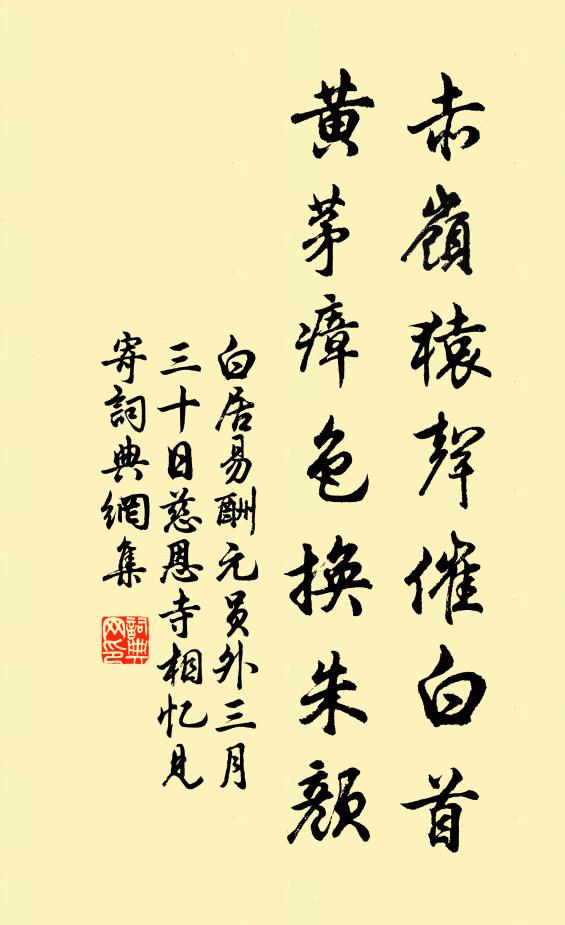 赤嶺猿聲催白首
黃茅瘴色換朱顏
白居易酬元员外三月
三十日慈恩寺相忆见
寄詞典網集
詞典
网印